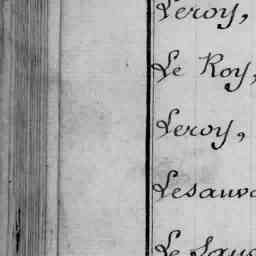 Leroy,
Le Roy,
Leroy,
Lesauva
Le Sau